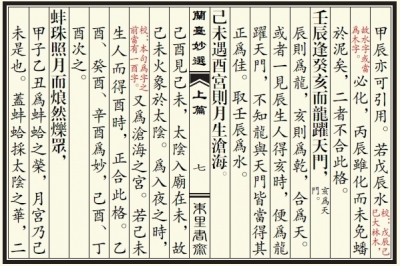 甲辰亦可引用。若戊辰水校：戊辰己巳大林木，
故水字或當為木字。必化，丙辰雖化而未免蟠
於泥矣，二者不合此格。
壬辰逢癸亥而龍躍天門，亥為天門。
辰則為龍，亥則為乾，合為天。
或者一見辰生人得亥時，便為龍
躍天門，不知龍與天門皆當得其
正為佳。取壬辰為水。
己未遇酉宮則月生滄海。
蘭臺妙選 上篇 七 東里書齋
己酉見己未，太陰入廟在未，故
己未火象於太陰。為入夜之時，
校：本句為字之前當有一酉字。又為滄海之宮。若己未
生人而得酉時，正合此格。乙
酉、癸酉、辛酉為妙，己酉、丁
酉次之。
蚌珠照月而烺然爍眾，
甲子乙丑為蚌蛤之榮，月宮乃己
未是也。蓋蚌蛤採太陰之華，二